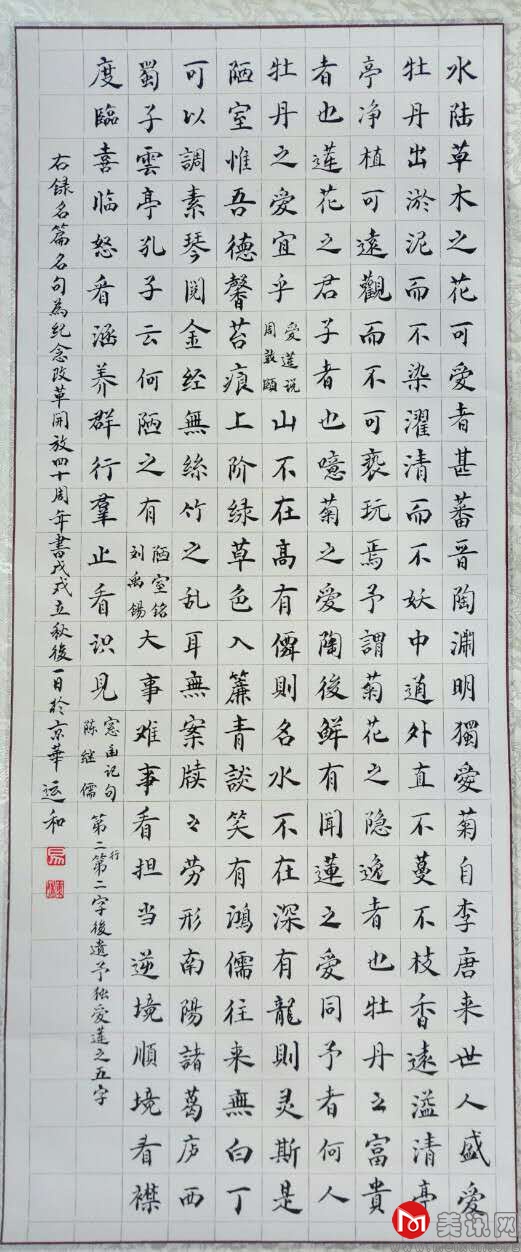 水陆草木之花可愛者甚蕃晋陶淵明獨愛菊自李唐来世人盛愛
牡丹出淤泥而不染濯清而不妖中通外直不蔓不枝香遠溢清亭
亭净植可遠觀而不可褻玩焉予謂菊花之隐逸者也牡丹之富貴
者也蓮花之君子者也噫菊之愛陶後鲜有聞蓮之愛同予者何人
牡丹之愛宜乎
愛蓮说
周敦頤
山不在高有僊則名水不在深有龍則灵斯是
陋室惟吾德馨苔痕上阶绿草色入簾青談笑有鴻儒往来無白丁
可以調素琴閲金经無絲竹之乱耳無案牍之劳形南陽諸葛庐西
蜀子雲亭孔子云何陋之有
陋室铭
刘禹锡
大事难事看担当逆境順境看襟
度臨喜临怒看涵养群行羣止看识見
窓幽记句
陈继儒
第二行第二字後遺予独爱蓮之五字
右録名篇名句為纪念改革開放四十周年書戊戌立秋後一日於京華 运和
美讯网